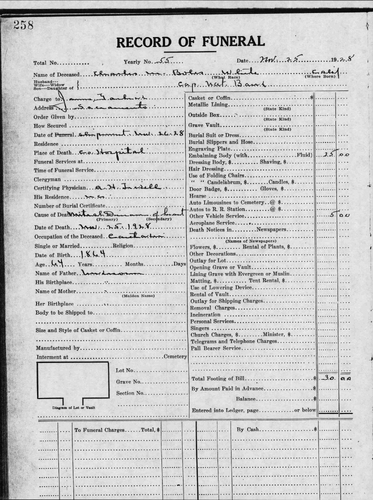 258
RECORD OF FUNERAL
Total No. Yearly No. 55 Date, Nov. 25 1928
Name of Deceased Charles M. White Calif
(What Race) (Where Born)
Husband—Wife—Widow Son—Daughter of Cap. Nat. Bank
Charge to
Address Sacramento
Order Given by
How Secured
Date of Funeral shipment Nov. 26-28
Residence
Place of Death Co. Hospital
Funeral Services at
Time of Funeral Service
Clergyman
Certifying Physician
His Residence
Number of Burial Certificate
Cause of Death Mitral Disease of heart
(Primary) (Secondary)
Date of Death Nov. 25-1928
Occupation of the Deceased
Single or Married Religion
Date of Birth 1864
Age, 64 Years, Months, Days
Name of Father Unknown
His Birthplace
Name of Mother
(Maiden Name)
Her Birthplace
Body to be Shipped to
Size and Style of Casket or Coffin
Manufactured by
Interment at Cemetery
Lot No.
Grave No.
Section No.
Diagram of Lot or Vault
Casket or Coffin $
Metallic Lining
(State Kind)
Outside Box
(State Kind)
Grave Vault
(State Kind)
Burial Suit or Dress
Burial Slippers and Hose
Engraving Plate
Embalming Body (with Fluid) 25 00
Dressing Body, $ Shaving, $
Hair Dressing
Use of Folding Chairs
" " Candelabrum, $ Candles, $
Door Badge, $ Gloves, $
Hearse
Auto Limousines to Cemetery @ $
Autos to R. R. Station @ $
Other Vehicle Service 5 00
Aeroplane Service
Death Notices in Newspapers
(Names of Newspapers)
Flowers, $ Rental of Plants, $
Other Decorations
Outlay for Lot
Opening Grave or Vault
Lining Grave with Evergreen or Muslin
Matting, $ Tent Rental, $
Use of Lowering Device
Rental of Vault
Outlay for Shipping Charges
Removal Charges
Incineration
Personal Services
Singers
Church Charges, $ Minister, $
Telegrams and Telephone Charges
Pall Bearer Service
Total Footing of Bill $ 30 00
By Amount Paid in Advance $
Balance $
Entered into Ledger, page or below
To Funeral Charges Total, $
By Cash $